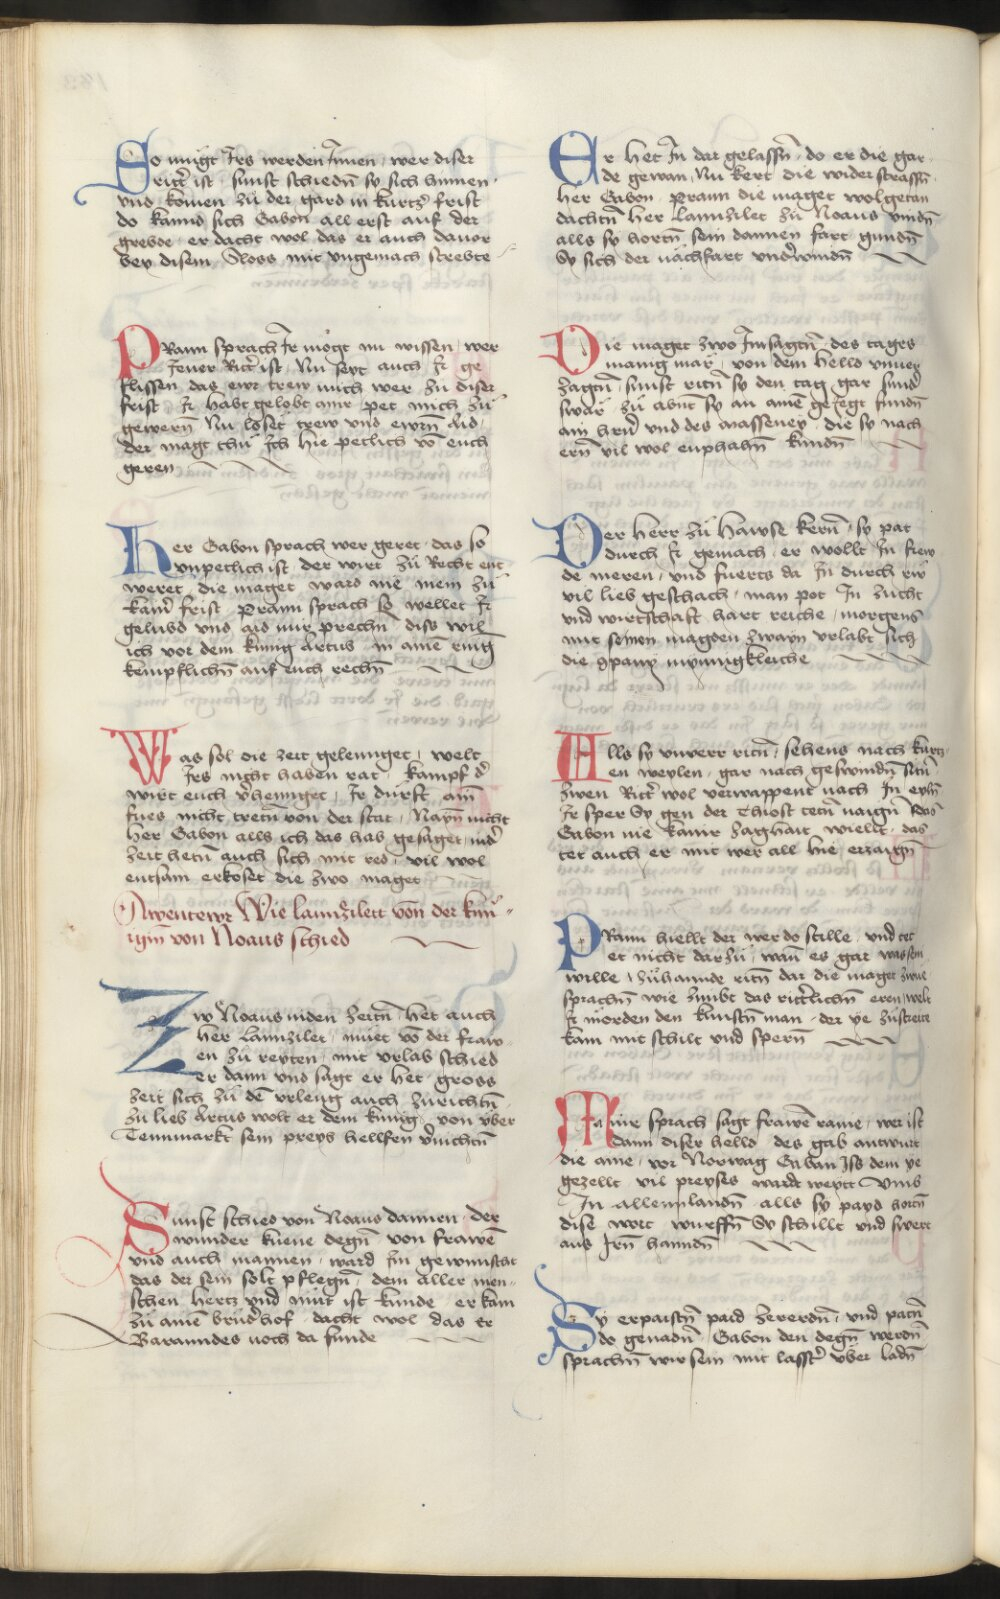 So mügt Irs werden Innen, wer diser
ritter ist, sunst schiedn sy sich hinnen
vnd komen zu der gard in kurtzer frist
do kannd sich Gabon all erst auf der
grebde, er dacht wol das er auch dauor
bey disem Sloss mit vngemach strebte
PRann sprach Ir mögt nu wissen, wer
Jener Ritter ist, Nu seyt auch Ir ge
flissen, das ewr trew mich wer zu diser
frist Ir habt gelobt mir pet mich zu
gewern, Nu löset trew vnd ewrn Aid,
der magt thu Ich hie petlich von euch
geren
Her Gabon sprach wer geret, das so
vnpetlich ist, der wirt zu Recht ent
weret, die maget ward nie mein zu
kainer frist, Prann sprach so wellet Ir
gelubd vnd aid mir prechn, diss wil
ich vor dem kunig Artus in ainem ring
kempflichn auf euch rechn
Was sol die zeit gelennget, welt
Irs nicht haben rat, kampf der
wirt euch verhennget, Ir dürft ain
fues nicht tretn von der stat, Nayn nicht
her Gabon alls ich das hab gesaget, inder
zeit hetn auch sich mit red, vil wol
entsam erkoset die zwo maget
Awentewr Wie lannzilett von der kun
igin von Noaus schied
Zw Noaus inden zeitn, het auch
her Lannzilet, müet von der fraw
en zu reyten, mit vrlab schied
er dann vnd sagt er het gross
zeit sich zu dem vrleug auch zurichtn
zu lieb Artus wolt er dem kunig, von vber
Tennmarkt sein preys hellfen vernichtn
Sunst schied von Noaus dannen, der
wunder kuene degn, von frawen
vnd auch mannen, ward Im gewunscht
das der sein solt pflegn, dem aller men
schen hertz vnd müt ist kunde, er kam
zu ainem brüderhof, dacht wol das er
Baranndes noch da funde
Er het In dar gelassn, do er die gar
de gewan, Nu kert die widerstrassn
her Gabon, Prann die maget wolgetan
dachtn her Lannzilet zu Noaus vindn
alls sy hortn sein dannen fart, gundn
Sy sich der nachfart vnderwindn
Die maget zwo Im sagtn, des tages
manig mär, von dem helld vnuer
zagtn, sunst ritn sy den tag gar sund
swär, zu abnt sy an ainem geiegt fundn
ain hern vnd des masseney, die sy nach
ern vil wol enphahn kundn
Der herr zu hawse kern, sy pat
durch Ir gemach, er wollt In frew
de meren, vnd fuerts da In durch rw
vil lieb geschach, man pot In zücht
vnd wirtschaft hart reiche, morgens
mit seinen magden zwayn vrlabt sich
die gpany mynnigkleiche
Alls sy vnuerr ritn, sehens nach kurtz
en weylen, gar nach geswindn sitn
zwen Ritter wol verwappent nach In eyln
Ir sper Sy gen der Thiost tetn naign, das
Gabon nie kainer zaghait wiellt, das
tet auch er mit wer all hie erzaign
PRann hiellt der werdo stille, vnd tet
er nicht darzü, wann es gar was sein
wille, zühannde ritn dar die maget zwue
sprachn wie zimbt das ritterlichn eren, welt
Ir mörden den kunstn man, der ye zustreit
kam mit schilt vnd spern
Maine sprach sagt frawen raine, wer ist
dann diser helld, des gab antwurt
die aine, vor Norwag Gaban Iss dem ye
gezellt vil preyses wardt weytt Vmb
In allennlandn, alls sy payd hortn
dise wort wurffn Sy schillt vnd swert
aus Irn hanndn
Sy erpaistn paid zererdn, vnd patn
do genadn, Gabon den degn werdn
sprachn wir sein mit lasster vber ladn